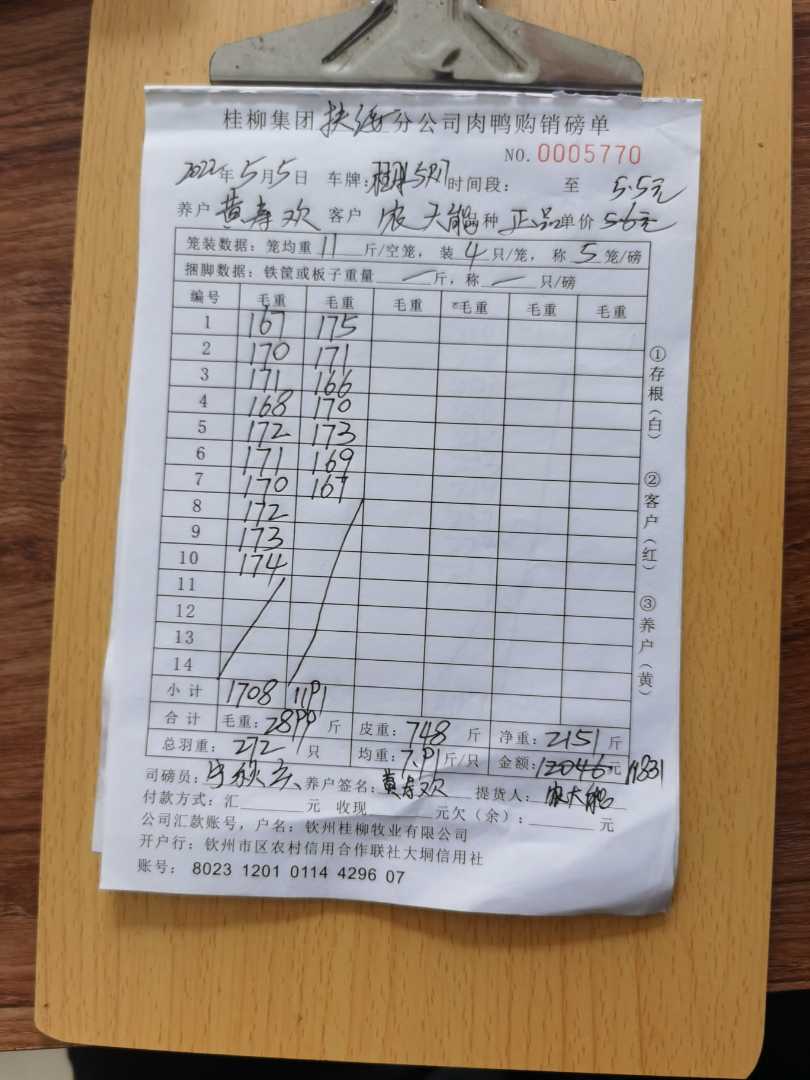 桂柳集团扶绥分公司肉鸭购销磅单
NO.0005770
2022年5月5日 车牌: 时间段: 至 5.5元
养户 黄寿欢 客户 农天能 品种 正品 单价 5.6元
笼装数据:笼均重 11 斤/空笼,装 4 只/笼,称 5 笼/磅
捆脚数据:铁筐或板子重量 — 斤,称 — 只/磅
编号 毛重 毛重 毛重 毛重 毛重 毛重
1 167 175
2 170 171
3 171 166
4 168 170
5 172 173
6 171 169
7 170 167
8 172
9 173
10 174
11
12
13
14
小计 1708 1191
合计 毛重:2899 斤 皮重:748 斤 净重:2151 斤
总羽重:272 只 均重:7.91 斤/只 金额:12046元 11831
司磅员: 养户签名:黄寿欢 提货人:农天能
付款方式:汇 元 收现 元欠(余): 元
公司汇款账号,户名:钦州桂柳牧业有限公司
开户行:钦州市区农村信用合作联社大垌信用社
账号: 8023 1201 0114 4296 07
①存根(白)
②客户(红)
③养户(黄)